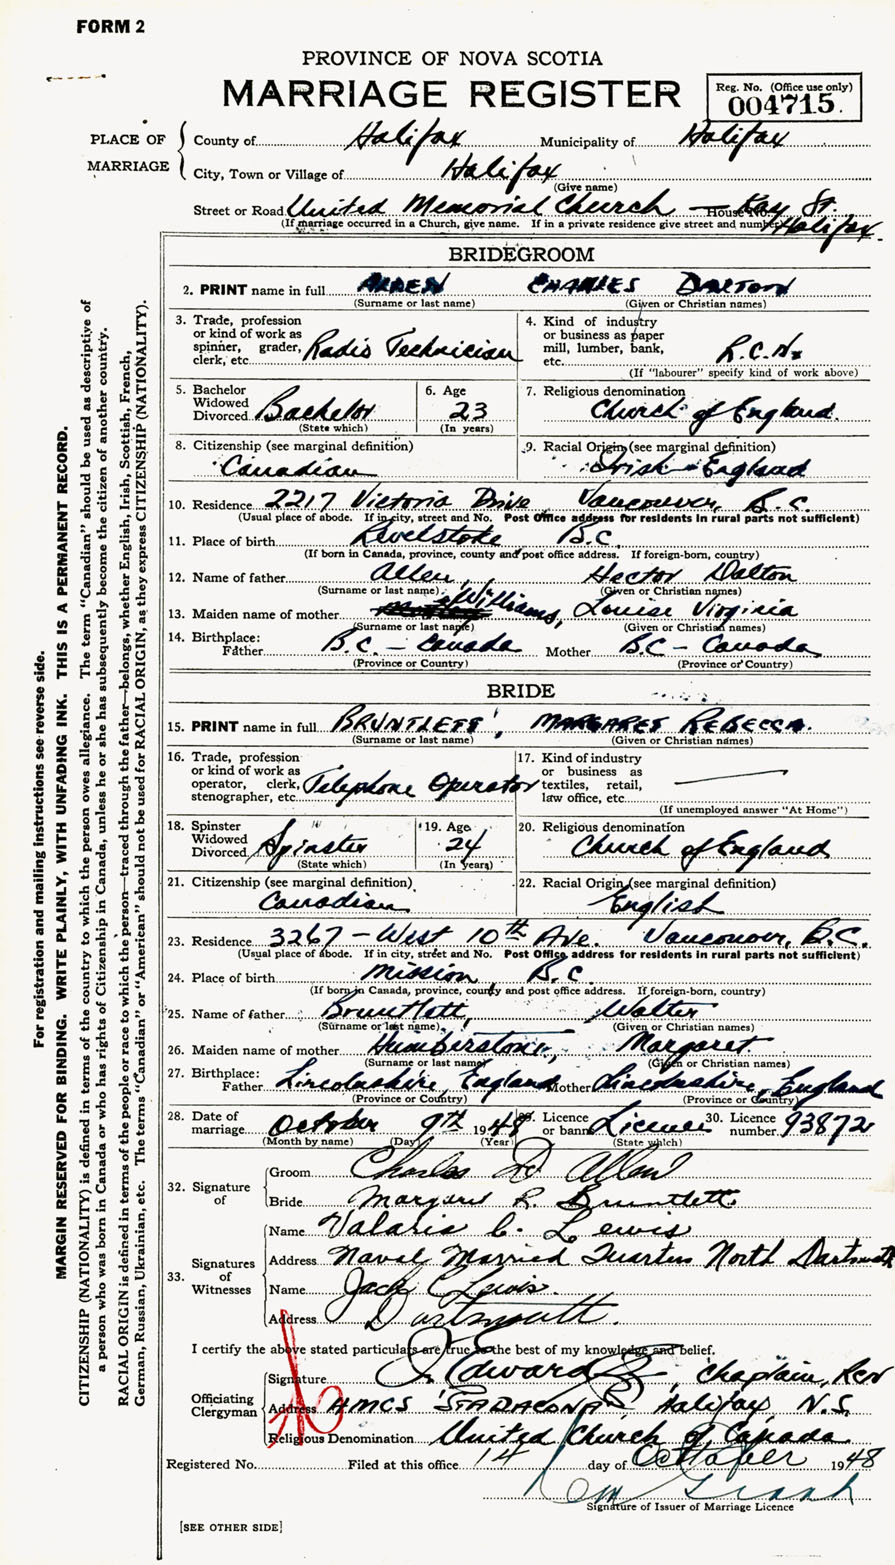 FORM 2
PROVINCE OF NOVA SCOTIA
MARRIAGE REGISTER
Reg. No. (Office use only)
004715
PLACE OF MARRIAGE
County of Halifax Municipality of Halifax
City, Town or Village of Halifax
(Give name)
Street or Road United Memorial Church — House No. Kay St. Halifax.
(If marriage occurred in a Church, give name. If in a private residence give street and number)
BRIDEGROOM
2. PRINT name in full ALLEN CHARLES DALTON
(Surname or last name) (Given or Christian names)
3. Trade, profession or kind of work as spinner, grader, clerk, etc. Radio Technician
4. Kind of industry or business as paper mill, lumber, bank, etc. R.C.N.
(If "labourer" specify kind of work above)
5. Bachelor Widowed Divorced Bachelor
(State which)
6. Age 23
(In years)
7. Religious denomination
Church of England.
8. Citizenship (see marginal definition)
Canadian
9. Racial Origin (see marginal definition)
Irish - England
10. Residence 2217 Victoria Drive, Vancouver, B.C.
(Usual place of abode. If in city, street and No. Post Office address for residents in rural parts not sufficient)
11. Place of birth Revelstoke B.C.
(If born in Canada, province, county and post office address. If foreign-born, country)
12. Name of father Allen, Hector Dalton
(Surname or last name) (Given or Christian names)
13. Maiden name of mother Williams, Louise Virginia
(Surname or last name) (Given or Christian names)
14. Birthplace:
Father B.C. - Canada Mother B.C - Canada
(Province or Country) (Province or Country)
BRIDE
15. PRINT name in full BRUNTLETT, MARGARET REBECCA.
(Surname or last name) (Given or Christian names)
16. Trade, profession or kind of work as operator, clerk, stenographer, etc. Telephone Operator
17. Kind of industry or business as textiles, retail, law office, etc. —
(If unemployed answer "At Home")
18. Spinster Widowed Divorced Spinster
(State which)
19. Age 24
(In years)
20. Religious denomination
Church of England
21. Citizenship (see marginal definition)
Canadian
22. Racial Origin (see marginal definition)
English
23. Residence 3267 - West 10th Ave. Vancouver, B.C.
(Usual place of abode. If in city, street and No. Post Office address for residents in rural parts not sufficient)
24. Place of birth Mission B.C.
(If born in Canada, province, county and post office address. If foreign-born, country)
25. Name of father Bruntlett, Walter
(Surname or last name) (Given or Christian names)
26. Maiden name of mother Humberstone, Margaret
(Surname or last name) (Given or Christian names)
27. Birthplace:
Father Lincolnshire, England Mother Lincolnshire, England
(Province or Country) (Province or Country)
28. Date of marriage October 9th 1948
(Month by name) (Day) (Year)
29. Licence or banns Licence
(State which)
30. Licence number 93872
32. Signature of
Groom Charles D Allen
Bride Margaret R. Bruntlett.
33. Signatures of Witnesses
Name Valarie C. Lewis
Address Naval Married Quarters North Dartmouth
Name Jack C Lewis.
Address Dartmouth.
I certify the above stated particulars are true to the best of my knowledge and belief.
Officiating Clergyman
Signature Edward , Chaplain, RCN
Address HMCS "STADACONA", Halifax, N.S.
Religious Denomination United Church of Canada.
Registered No. Filed at this office 14 day of October 1948
Signature of Issuer of Marriage Licence
[SEE OTHER SIDE]
For registration and mailing instructions see reverse side.
MARGIN RESERVED FOR BINDING. WRITE PLAINLY, WITH UNFADING INK. THIS IS A PERMANENT RECORD.
CITIZENSHIP (NATIONALITY) is defined in terms of the country to which the person owes allegiance. The term "Canadian" should be used as descriptive of
a person who was born in Canada or who has rights of Citizenship in Canada, unless he or she has subsequently become the citizen of another country.
RACIAL ORIGIN is defined in terms of the people or race to which the person—traced through the father—belongs, whether English, Irish, Scottish, French,
German, Russian, Ukrainian, etc. The terms "Canadian" or "American" should not be used for RACIAL ORIGIN, as they express CITIZENSHIP (NATIONALITY).